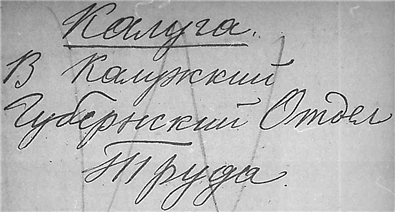 Калуга.
В Калужский
Губернский Отдел
Труда.